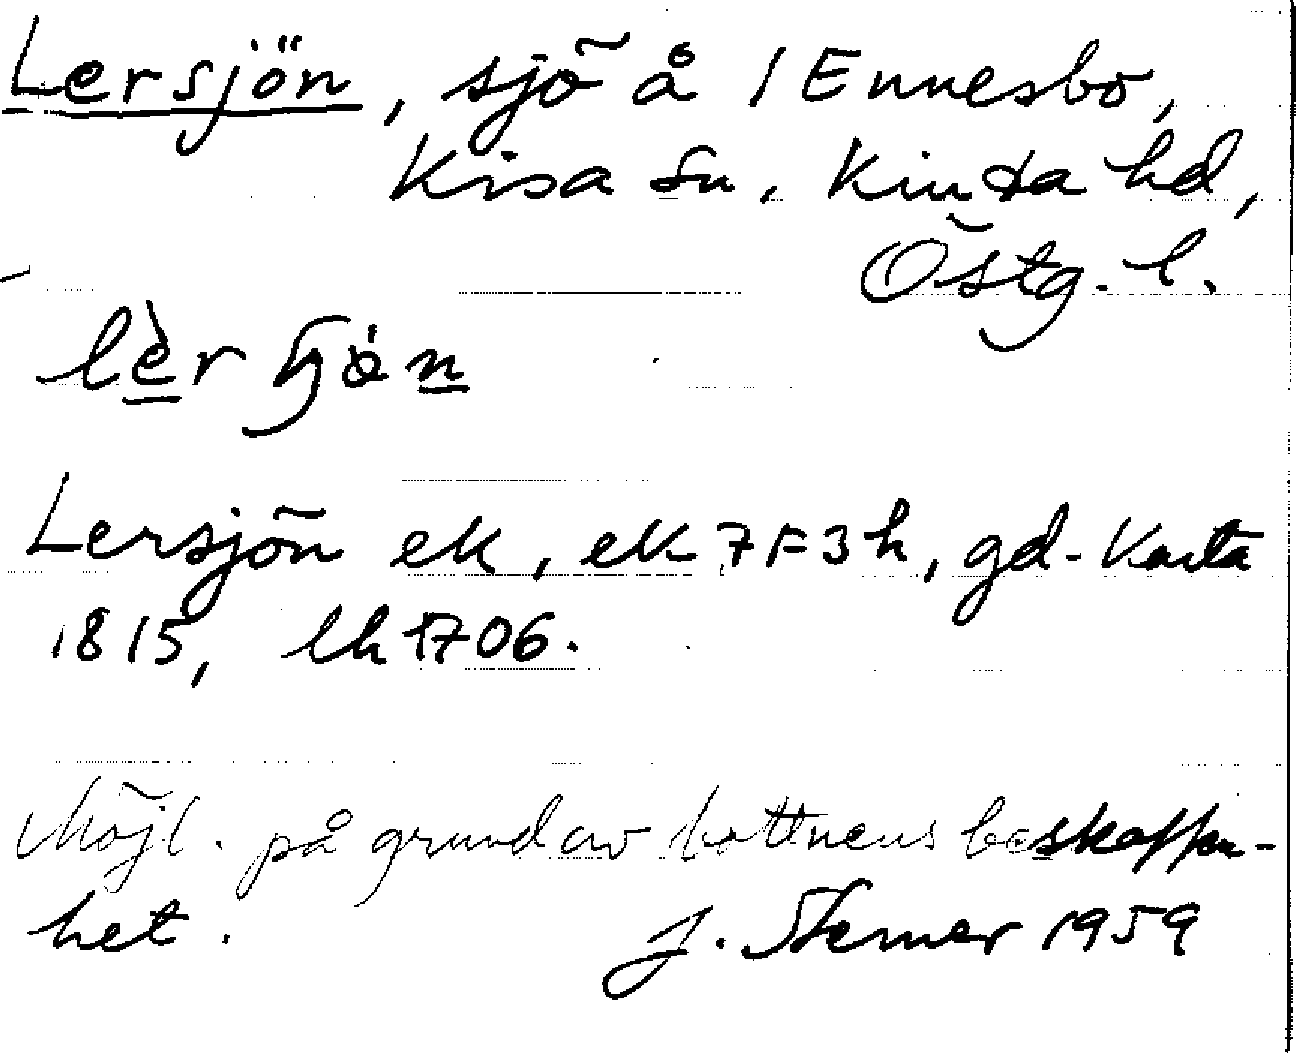 Lersjön, sjö å 1 Ennesbo,
Kisa sn. Kinda hd,
Östg. l.
Lersjön ek, ek 7F3h, gd-karta
1815, lk 1706.
Möjl. på grund av bottnens beskaffen-
het. J. Sterner 1959